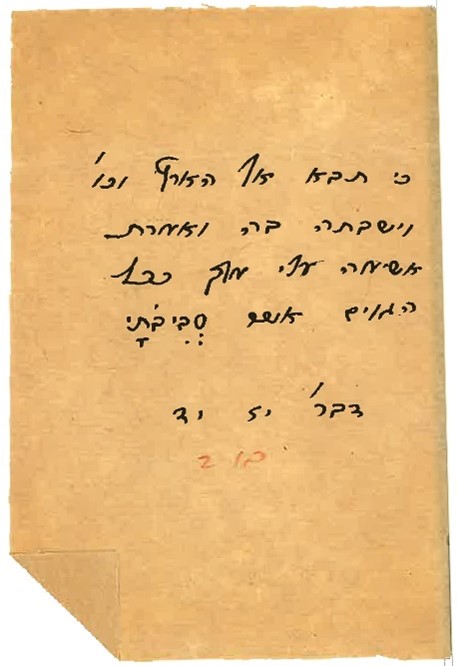 כי תבא אל הארץ וכו'
וישבתה בה ואמרת
אשימה עלי מלך ככל
הגוים אשר סְבִיבֹתָי
דבר' יז יד